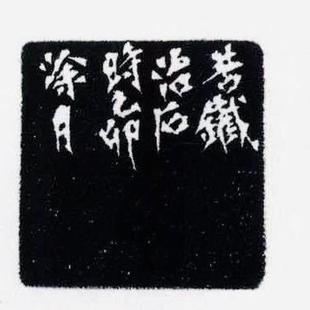 苦鐵
治石
時乙卯
涂月